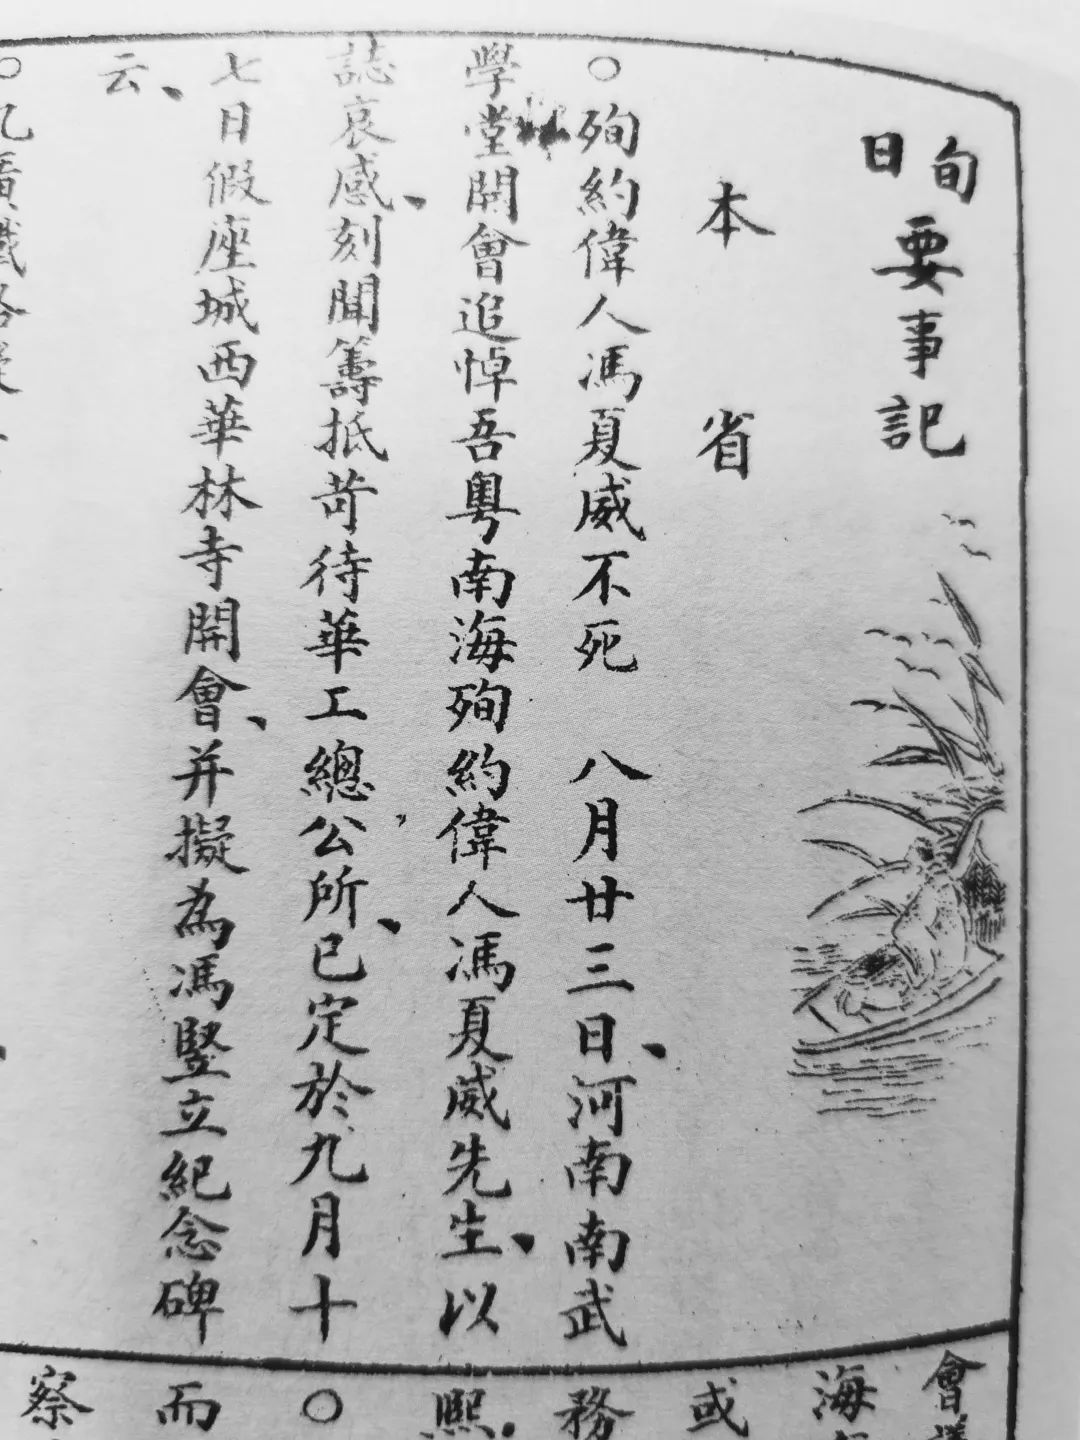 旬日要事記
本省
○殉約偉人馮夏威不死　八月廿三日、河南南武
學堂開會追悼吾粵南海殉約偉人馮夏威先生、以
誌哀感、刻聞籌抵苛待華工總公所、已定於九月十
七日假座城西華林寺開會、并擬為馮豎立紀念碑
云、
會
海
或
務
熙.
○
而
察